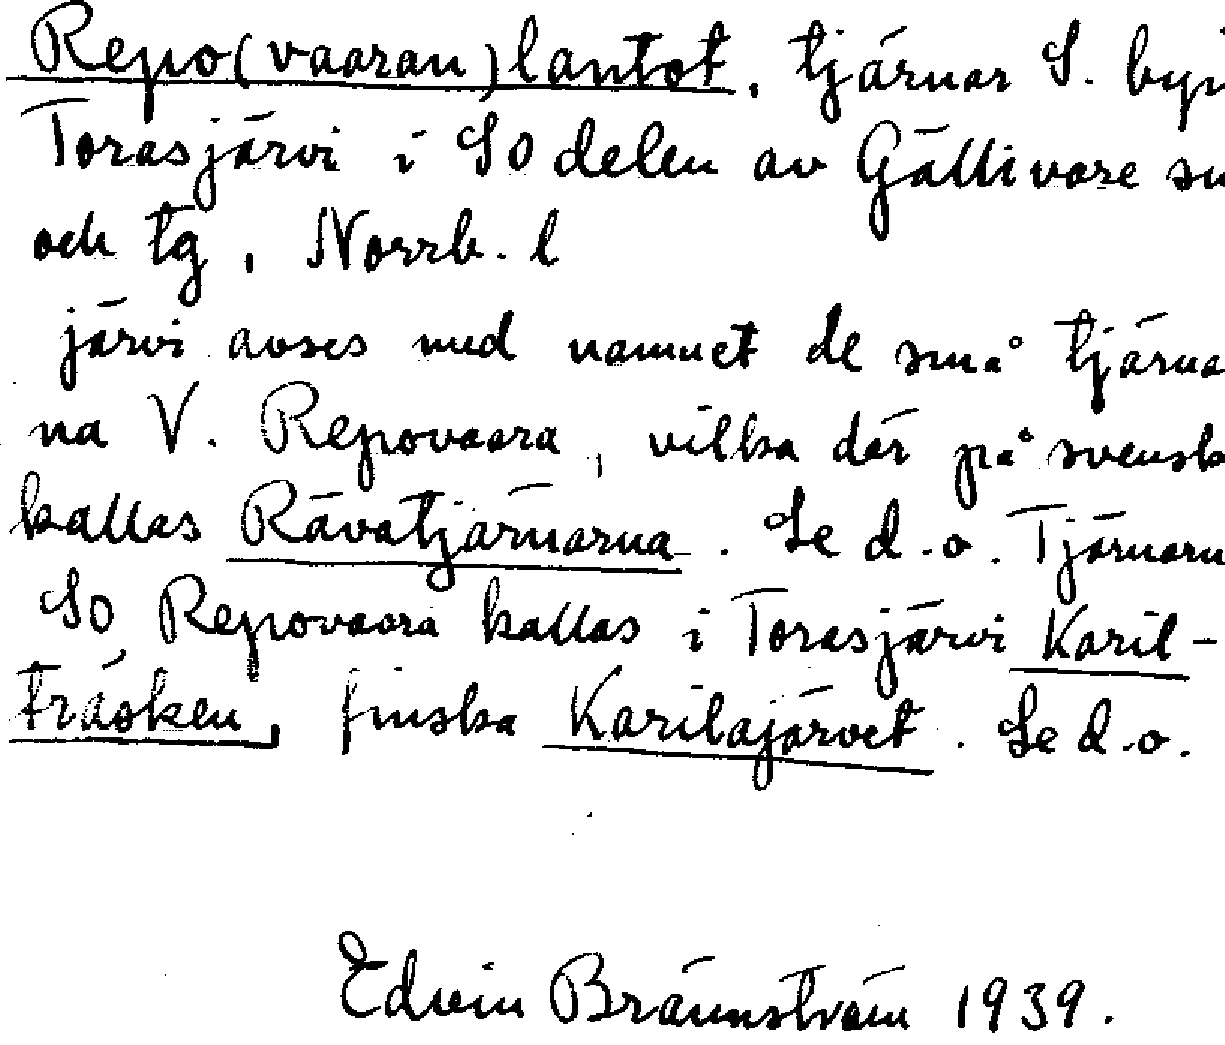 Repo(vaaran)lantot, tjärnar S. byn
Torasjärvi i SO delen av Gällivare sn
och tg, Norrb. l
järvi avses med namnet de små tjärnar
na V. Repovaara, vilka där på svenska
kallas Rävatjärnarna. Se d.o. Tjärnarna
SO, Repovaara kallas i Torasjärvi Karil-
träsken, finska Karilajärvet. Se d.o.
Edvin Brännström 1939.